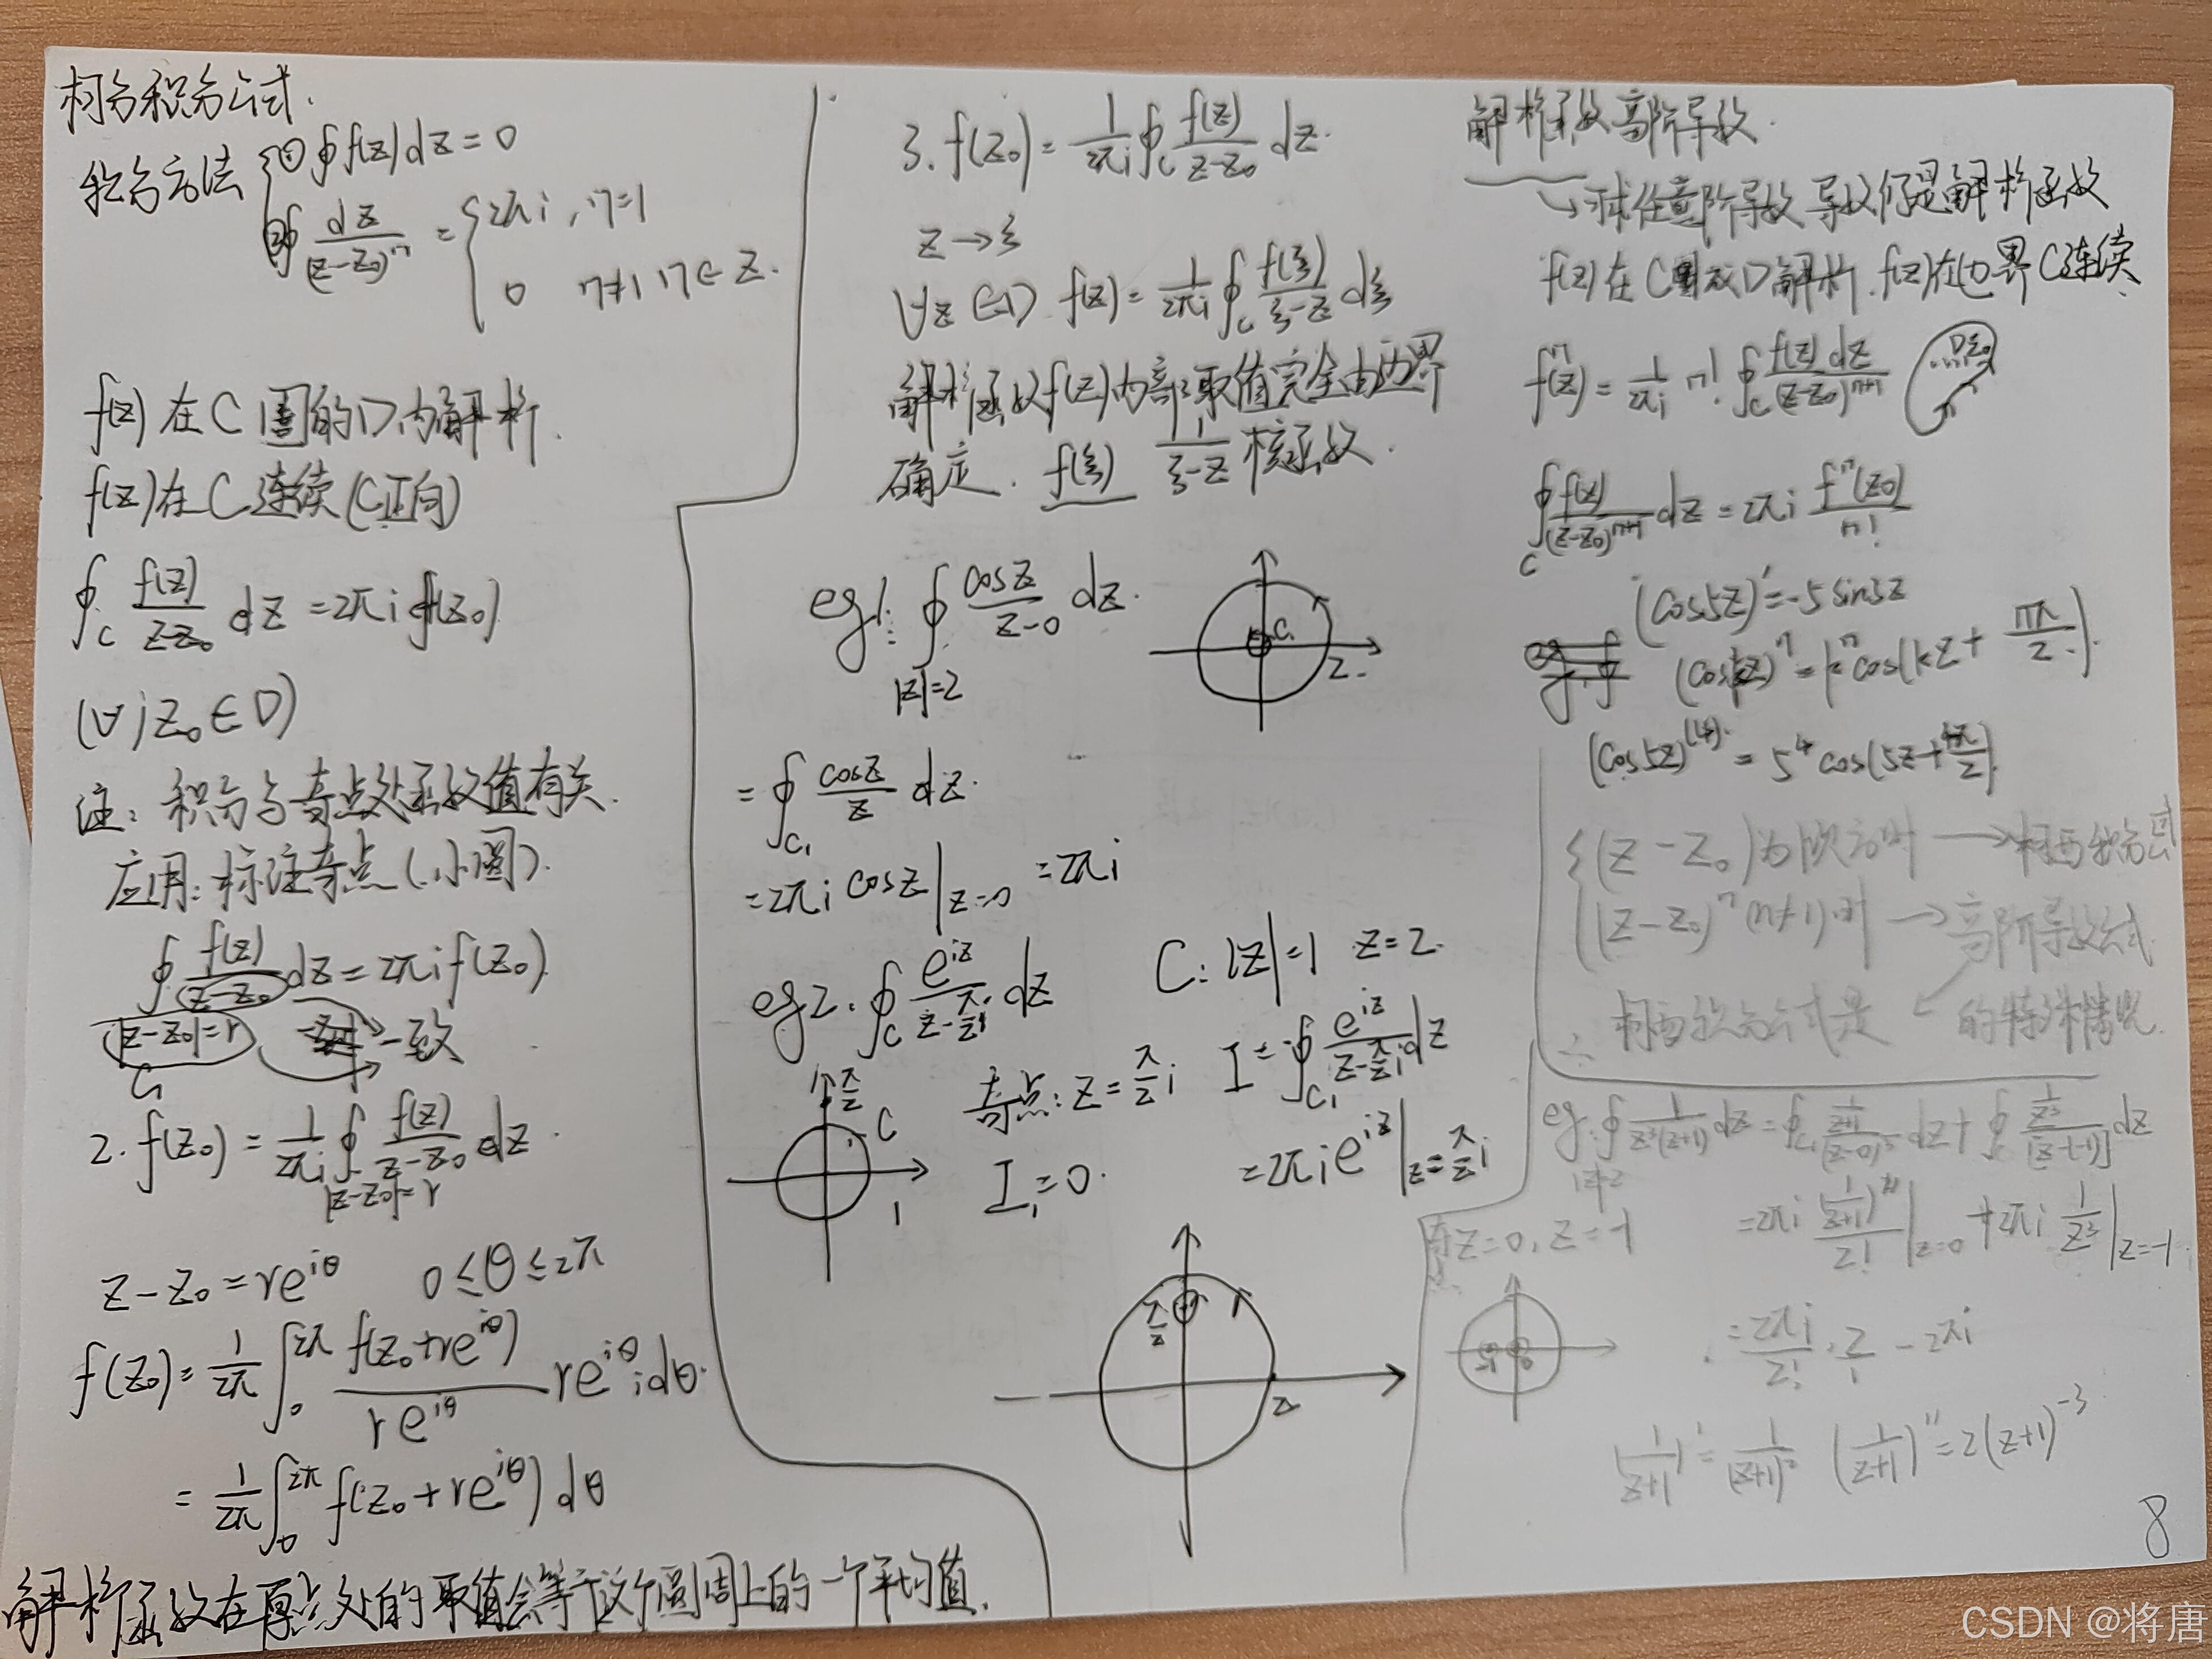 柯西积分公式.
积分方法 { ① ∮f(z)dz=0
② ∮ dz/(z-z₀)ⁿ = { 2πi, n=1
0 n≠1, n∈Z.
f(z)在C围的D内解析.
f(z)在C连续(C正向)
∮_C f(z)/(z-z₀) dz = 2πi f(z₀)
(∀ z₀∈D)
注: 积分与奇点处函数值有关.
应用: 标注奇点(小圆).
∮ f(z)/(z-z₀) dz = 2πi f(z₀)
|z-z₀|=r 一致
C₁
2. f(z₀) = 1/2πi ∮ f(z)/(z-z₀) dz.
|z-z₀|=r
z-z₀=re^{iθ} 0≤θ≤2π
f(z₀) = 1/2π ∫₀^{2π} f(z₀+re^{iθ})/re^{iθ} re^{iθ} i dθ.
= 1/2π ∫₀^{2π} f(z₀+re^{iθ}) dθ
解析函数在原点处的取值会等于这个圆周上的一个平均值.
3. f(z₀) = 1/2πi ∮_C f(z)/(z-z₀) dz.
z→ξ
∀z∈D f(z) = 1/2πi ∮_C f(ξ)/(ξ-z) dξ
解析函数f(z)内部取值完全由边界
确定. f(ξ) 1/(ξ-z) 核函数.
eg1: ∮ cosz/(z-0) dz.
|z|=2
C₁
2.
= ∮_{C₁} cosz/z dz.
=2πi cosz|_{z=0} =2πi
eg2. ∮_C e^{iz}/(z-π/2 i) dz C: |z|=1 z=2.
奇点: z=π/2 i I = ∮_{C₁} e^{iz}/(z-π/2 i) dz
I₁=0. =2πi e^{iz}|_{z=π/2 i}
π/2
C
1
π/2
2
解析函数高阶导数.
→求任意阶导数 导数仍是解析函数
f(z)在C围成D解析. f(z)在边界C连续
fⁿ(z) = 1/2πi n! ∮_C f(z)dz/(z-z₀)^{n+1}
D z₀
∮_C f(z)/(z-z₀)^{n+1} dz = 2πi fⁿ(z₀)/n!
(cos5z)'=-5sin5z
(coskz)ⁿ = kⁿcos(kz+nπ/2).
(cos5z)^{(4)} = 5⁴cos(5z+4π/2).
{ (z-z₀)为1次方时 → 柯西积分公式
(z-z₀)ⁿ(n≠1)时 → 高阶导数公式
∴ 柯西积分公式是 ↙ 的特殊情况.
eg: ∮ 1/z³(z+1) dz = ∮_{C₁} (1/(z+1))/(z-0)³ dz + ∮ (1/z³)/[z-(-1)] dz
|z|=2
奇点: z=0, z=-1 =2πi (1/(z+1))''/2! |_{z=0} + 2πi 1/z³ |_{z=-1}
-1 0
= 2πi/2! · 2/1 - 2πi
(1/(z+1))'= 1/(z+1)² (1/(z+1))''=2(z+1)^{-3}
8
CSDN @将唐